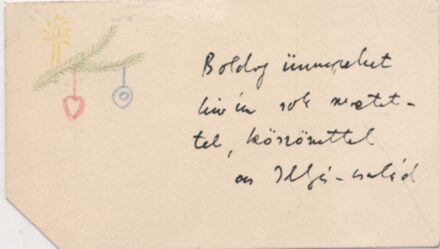 Boldog ünnepeket
kíván sok szeretet-
tel, köszönettel
az Illyés-család